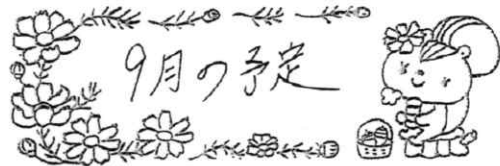 9月の予定